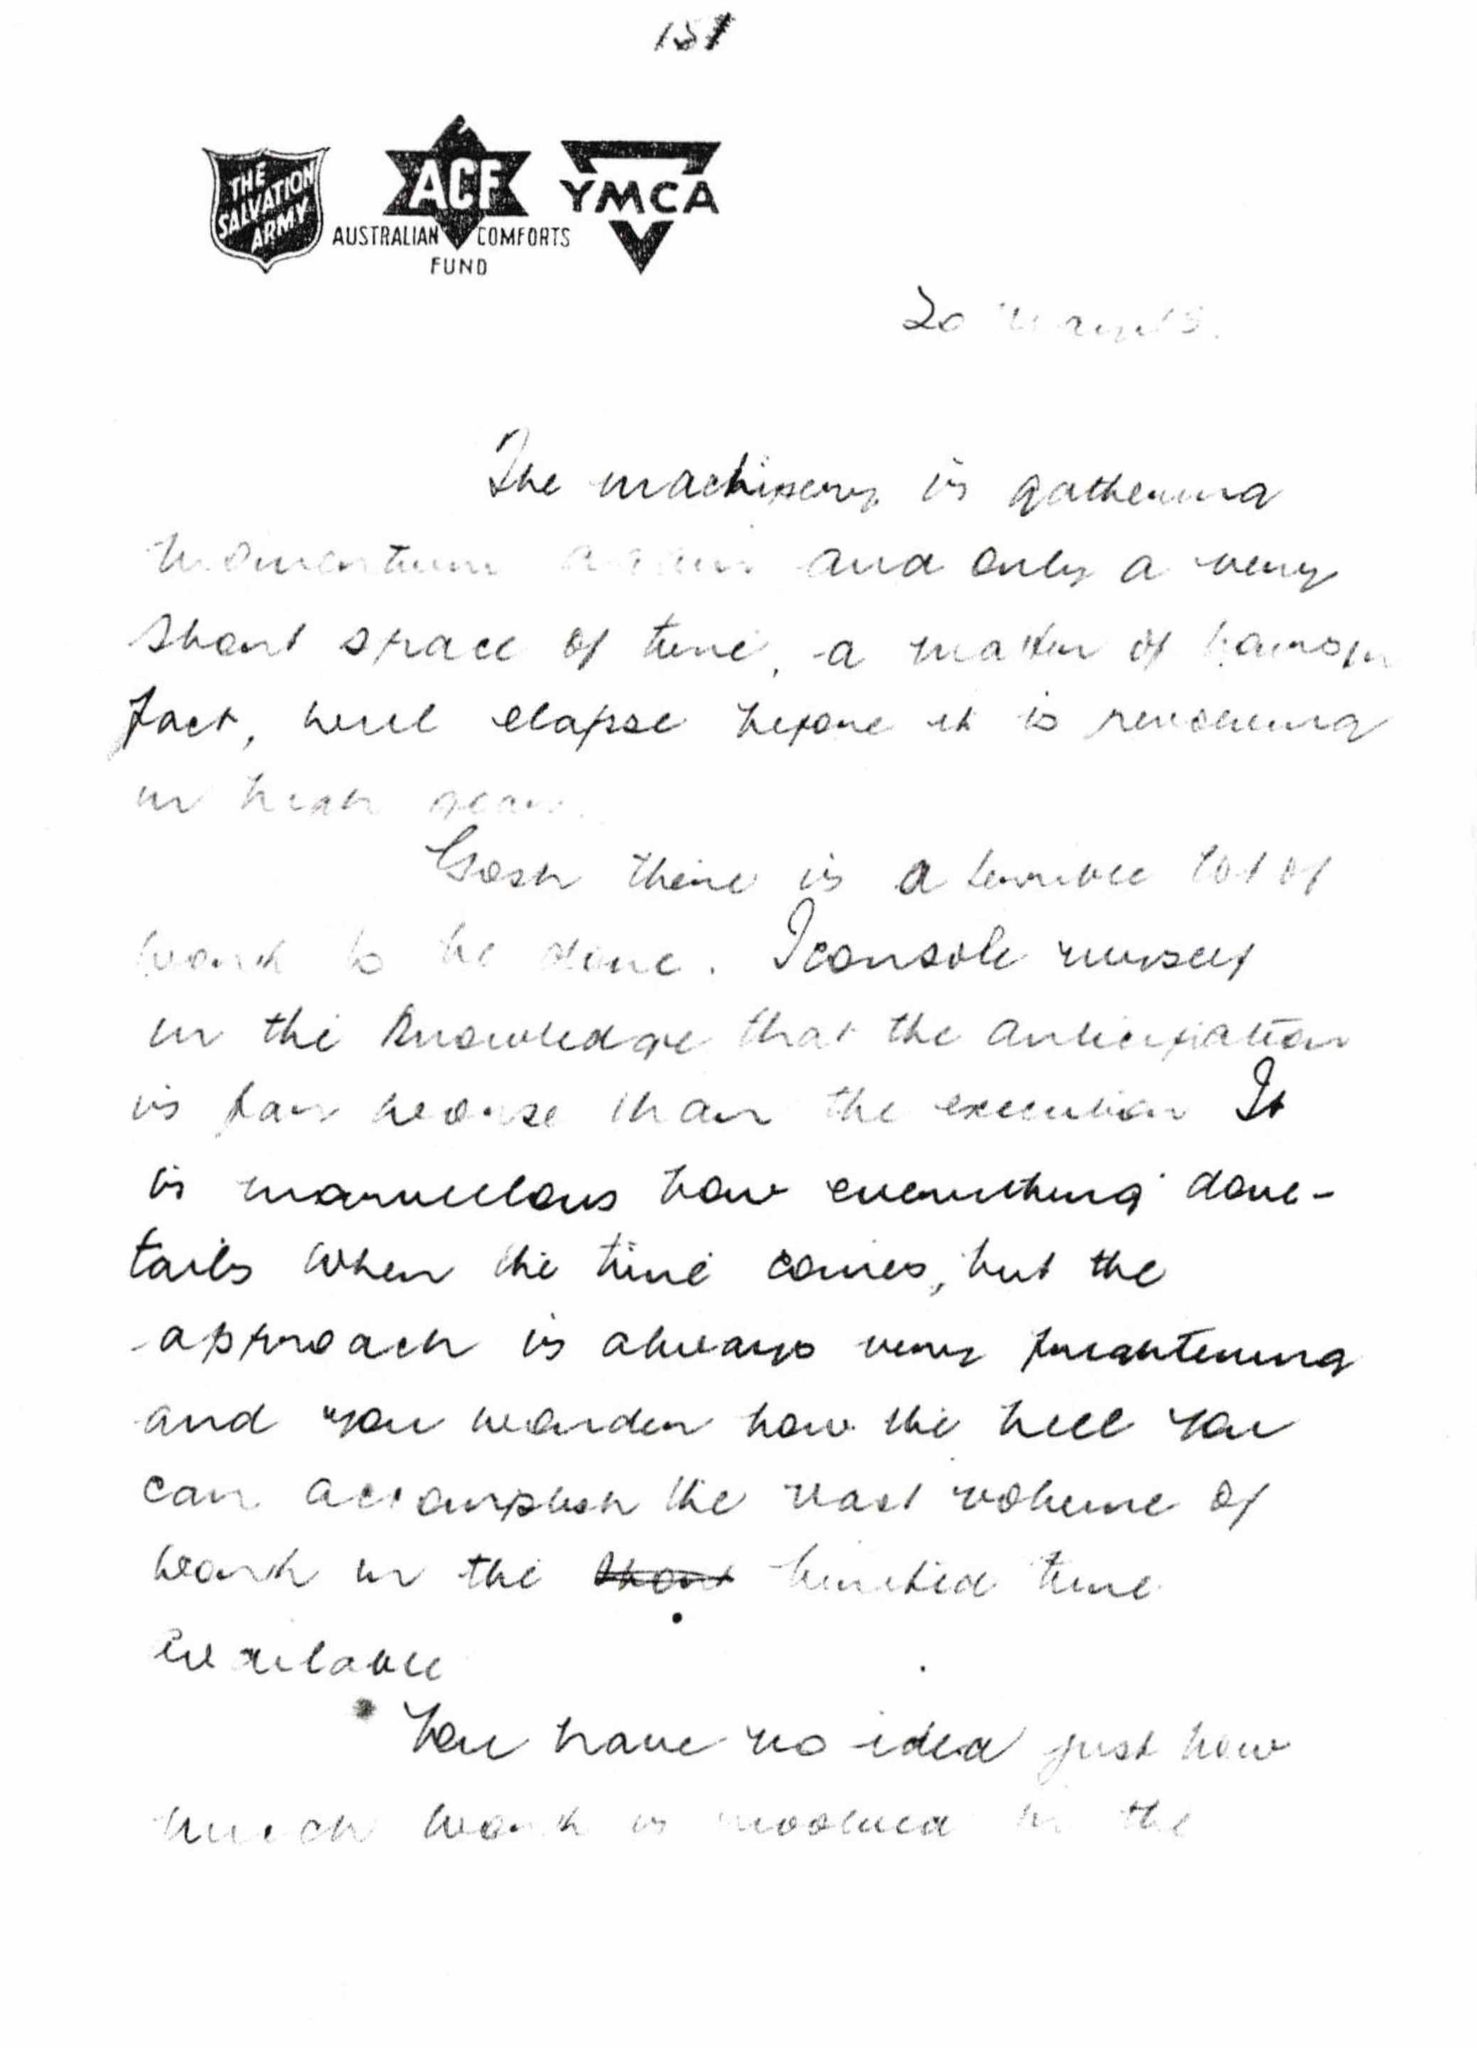 151
THE
SALVATION
ARMY
ACF
AUSTRALIAN COMFORTS
FUND
YMCA
20 May 45.
The machinery is gathering
momentum again and only a very
short space of time, a matter of hours in
fact, will elapse before it is revolving
in high gear.
Gosh there is a terrible lot of
work to be done. I console myself
in the knowledge that the anticipation
is far worse than the execution It
is marvellous how everything dove-
tails when the time comes, but the
approach is always very frightening
and you wonder how the hell you
can accomplish the vast volume of
work in the short limited time
available
You have no idea just how
much work is involved in the